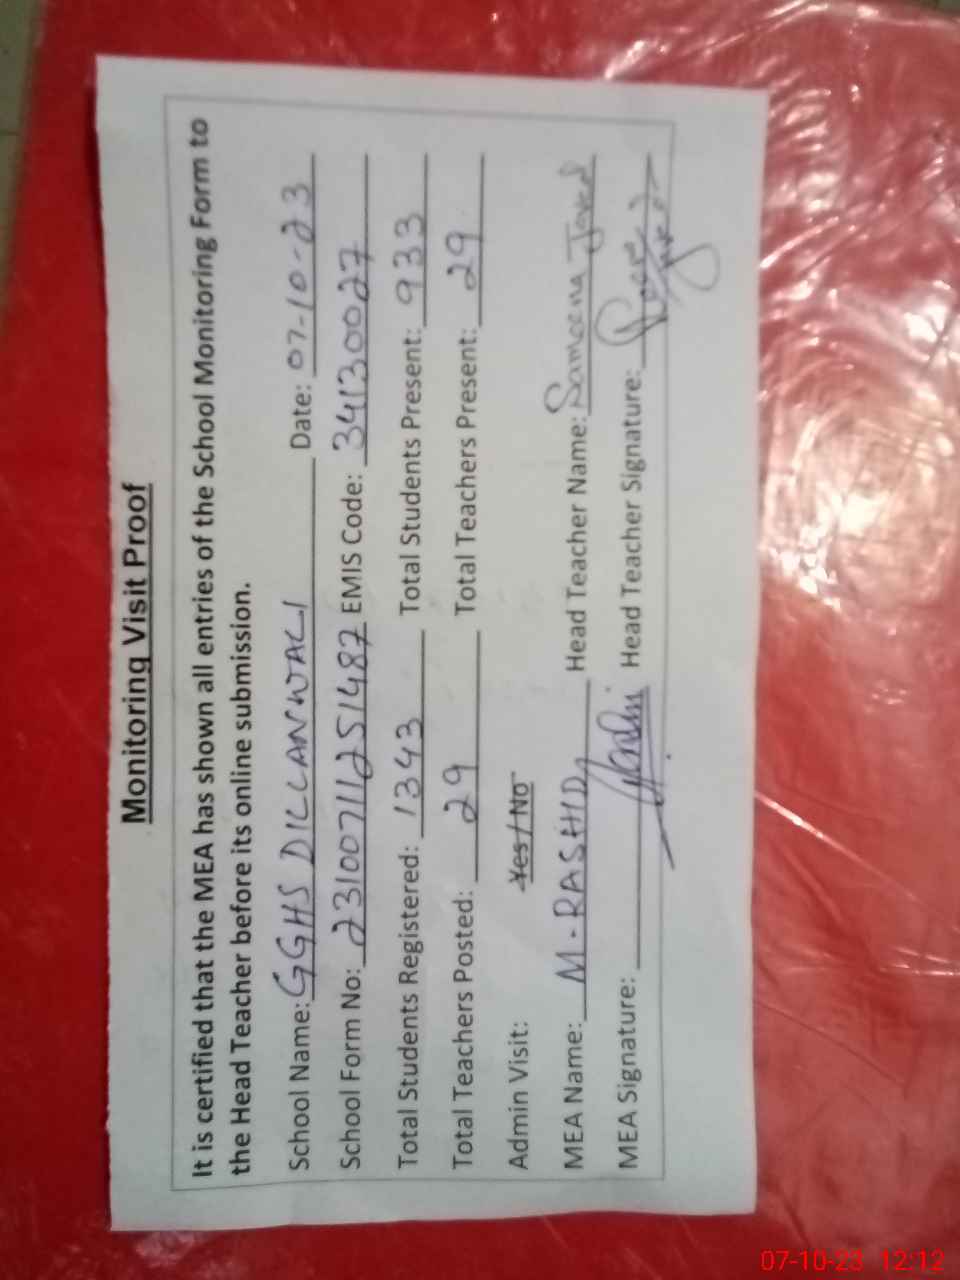 Monitoring Visit Proof
It is certified that the MEA has shown all entries of the School Monitoring Form to
the Head Teacher before its online submission.
School Name: GGHS DILLANWALI Date: 07-10-23
School Form No: 23100711251487 EMIS Code: 34130027
Total Students Registered: 1343 Total Students Present: 933
Total Teachers Posted: 29 Total Teachers Present: 29
Admin Visit: Yes / No
MEA Name: M. RASHID Head Teacher Name: Sameena Javed
MEA Signature: Head Teacher Signature:
07-10-23 12:12